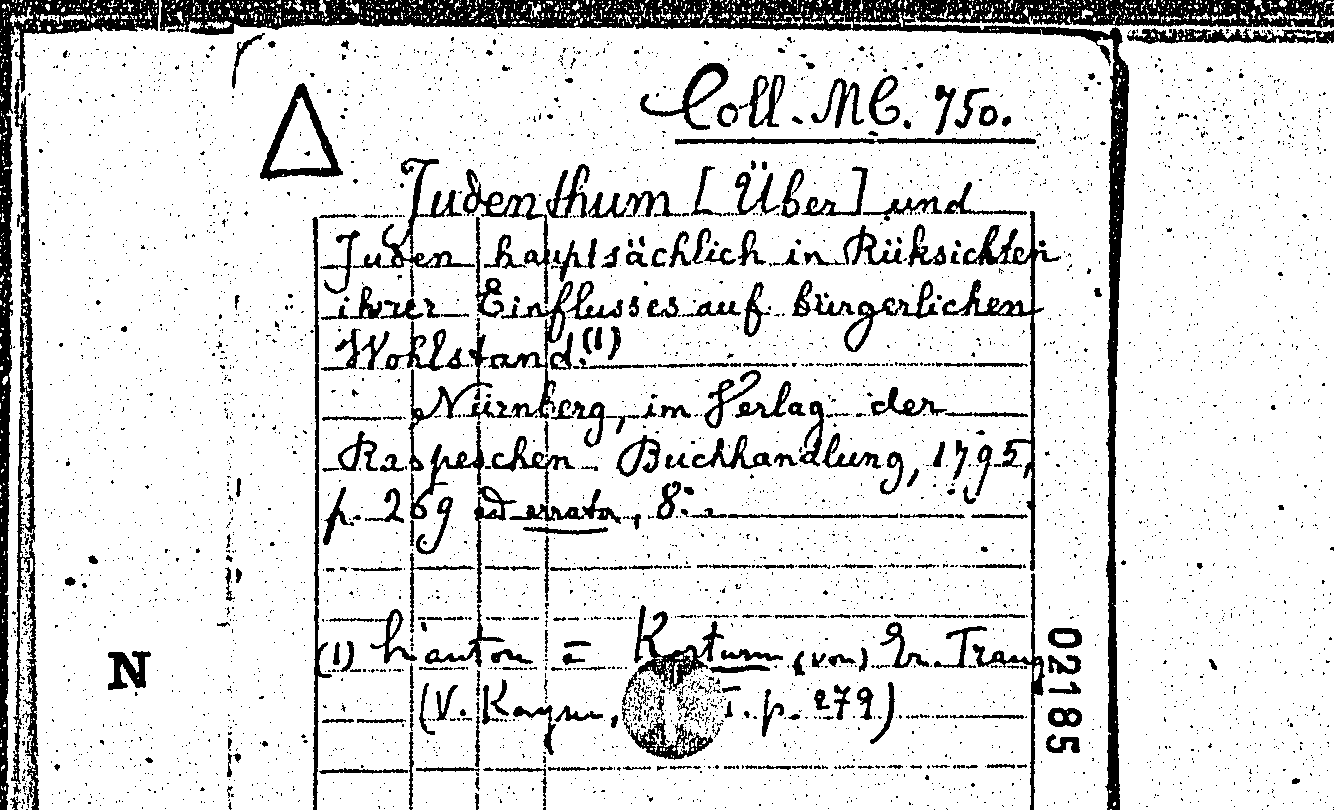 Coll. MC. 750.
Judenthum [Über] und
Juden hauptsächlich in Rüksichten
ihrer Einflusses auf bürgerlichen
Wohlstand.(1)
Nürnberg, im Verlag der
Raspeschen Buchhandlung, 1795,
p. 269 errata, 8:.
(1) = Kortum (von) Er. Traug
(V. Kayser, T. p. 279)
N
02185